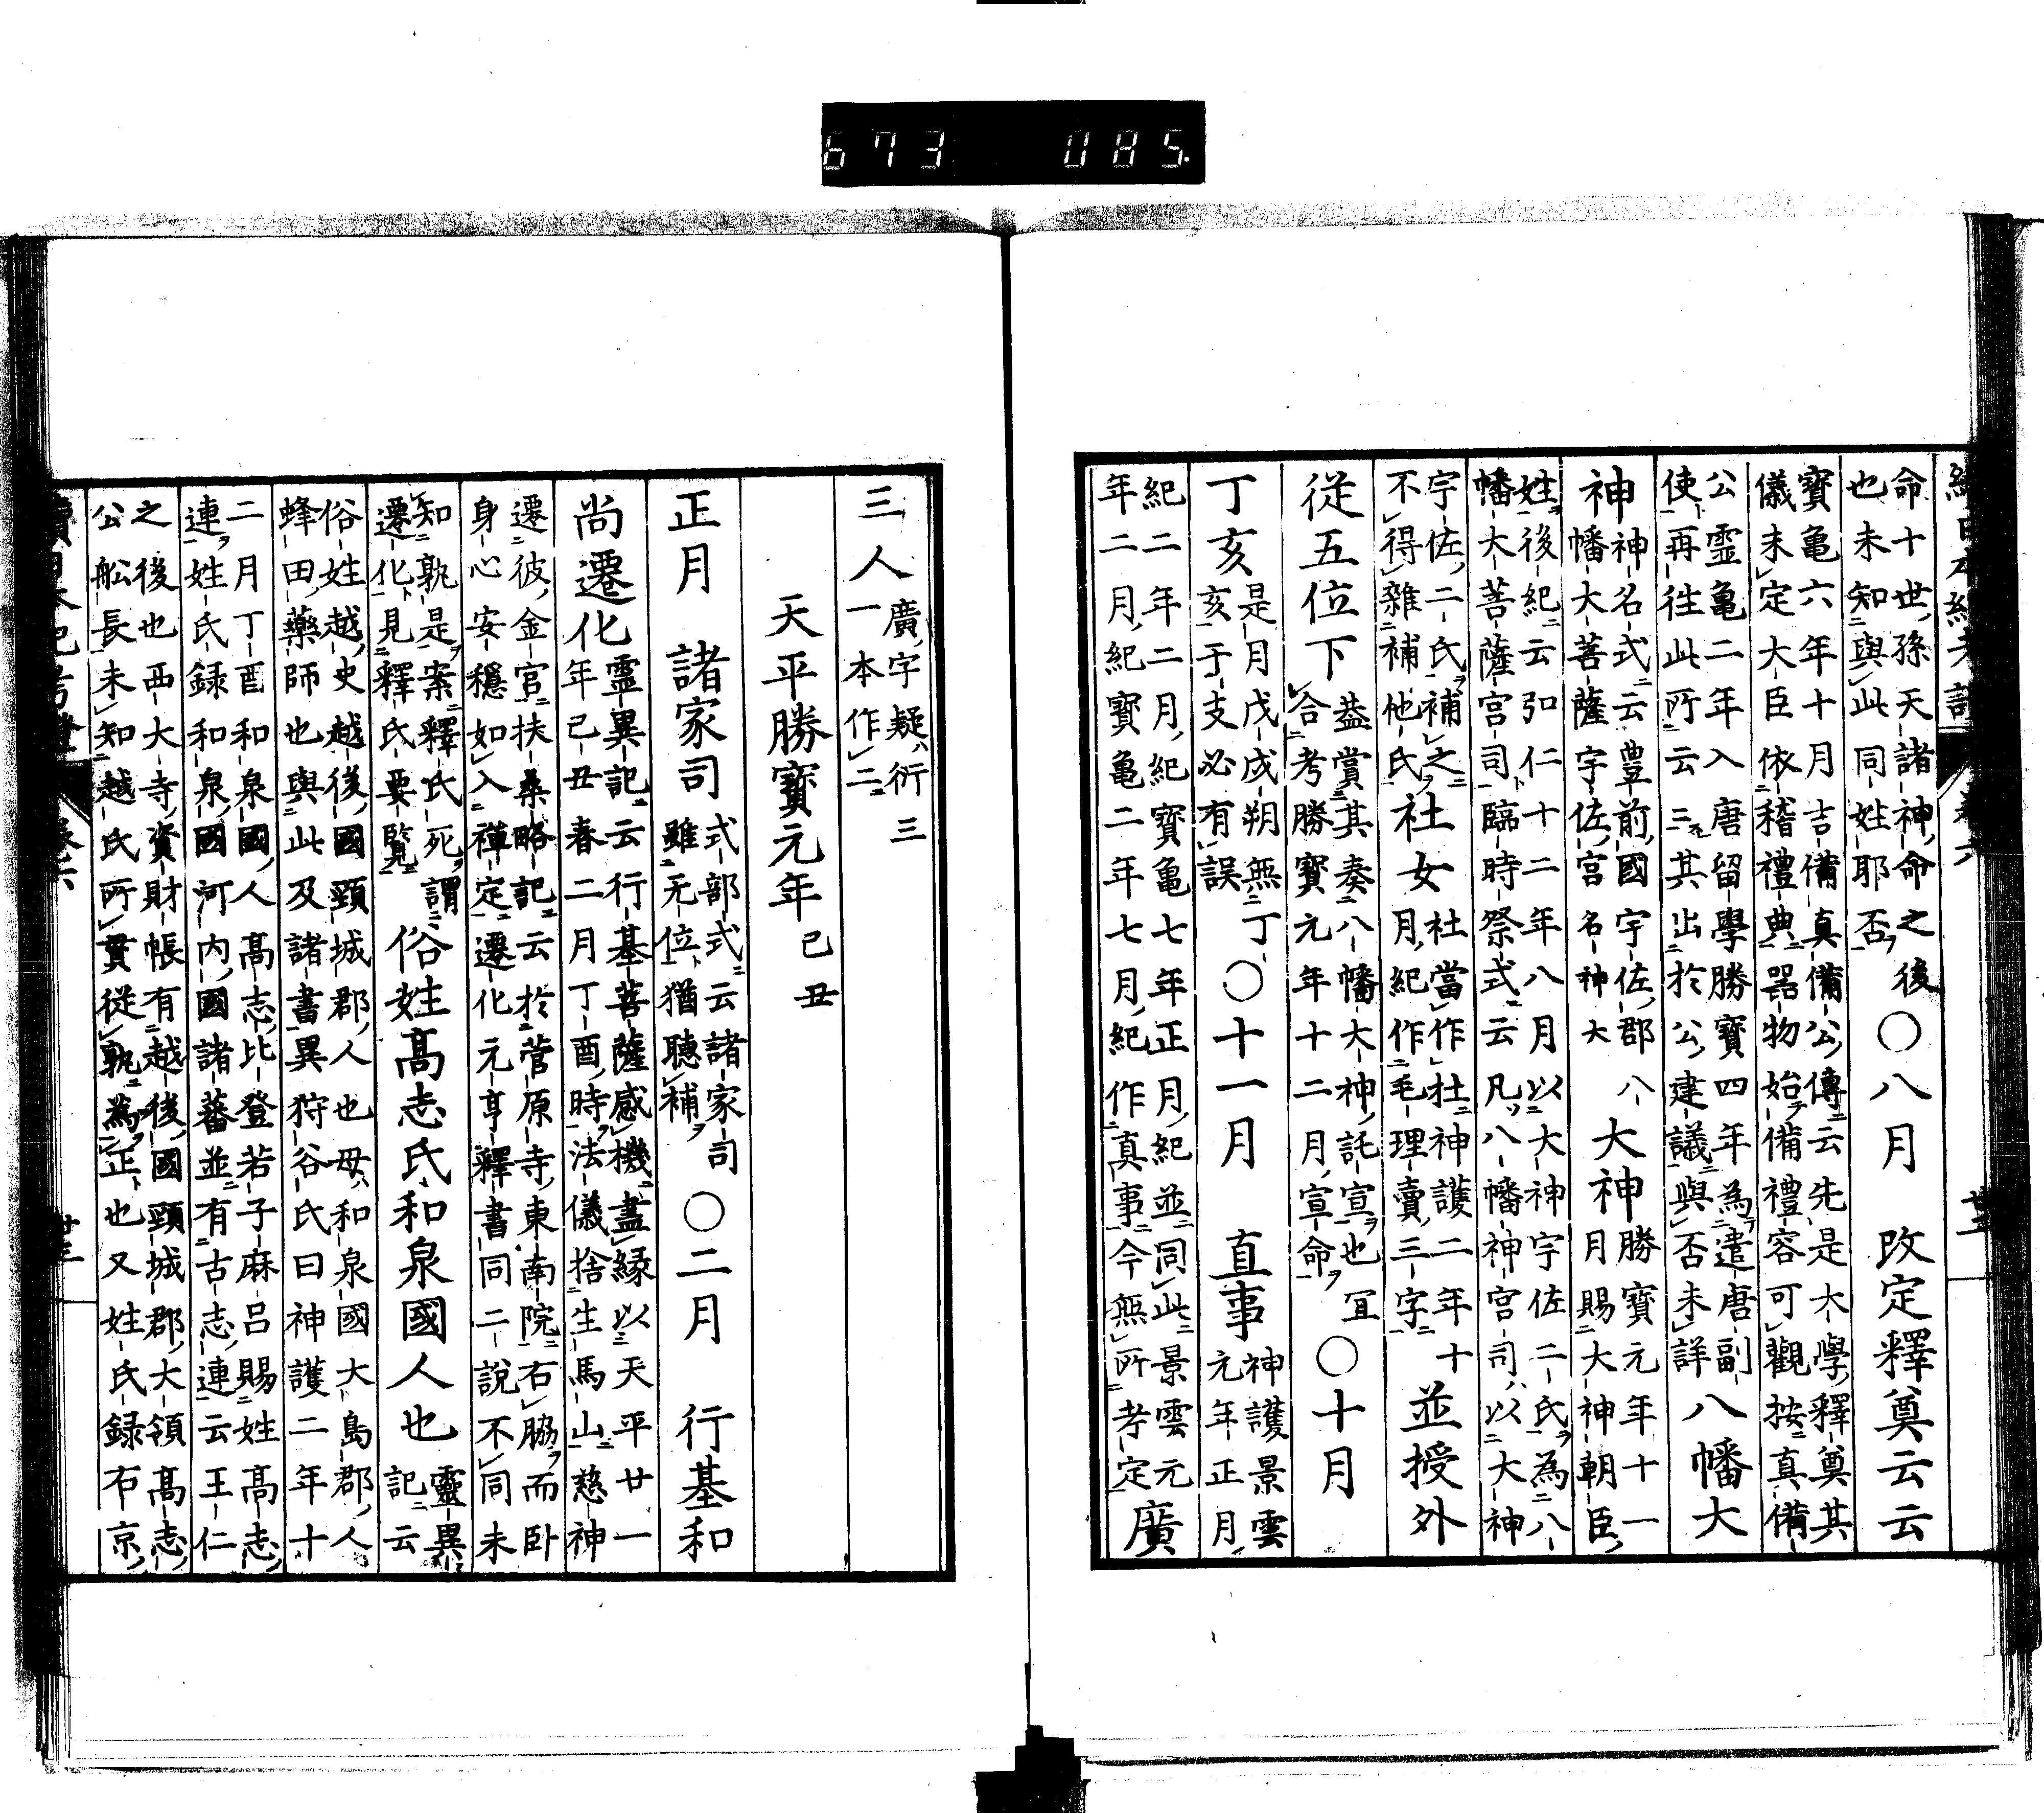 673 085.
命十世孫天諸神命之後
也未知與此同姓耶否
○八月 改定釋奠云云
寶亀六年十月吉備真備公傳云先是大學釋奠其
儀未定大臣依稽禮典器物始備禮容可觀按真備
公霊亀二年入唐留學勝寶四年為遣唐副
使再往此所云云其出於公建議與否未詳
八幡大
神
神名式云豊前國宇佐郡八
幡大菩薩宇佐宮名神大
大神
勝寶元年十一
月賜大神朝臣
姓後紀云弘仁十二年八月以大神宇佐二氏為八
幡大菩薩宮司臨時祭式云凡八幡神宮司以大神
宇佐二氏補之
不得雜補他氏
社女
社當作杜神護二年十
月紀作毛理賣三字
並授外
從五位下
葢賞其奏八幡大神託宣也冝
合考勝寶元年十二月宣命
○十月
丁亥
是月戊戌朔無丁
亥于支必有誤
○十一月 直事
神護景雲
元年正月
紀二年二月紀寶亀七年正月紀並同此景雲元
年二月紀寶亀二年七月紀作真事今無所考定
廣
三人
廣字疑衍三
一本作二
天平勝寶元年己丑
正月 諸家司
式部式云諸家司
雖无位猶聴補
○二月 行基和
尚遷化
霊異記云行基菩薩感機盡縁以天平廿一
年己丑春二月丁酉時法儀捨生馬山慈神
遷彼金宮扶桑略記云於菅原寺東南院右脇而卧
身心安穏如入禅定遷化元亨釋書同二說不同未
知孰是案釋氏死謂
遷化見釋氏要覧
俗姓髙志氏和泉國人也
靈異
記云
俗姓越史越後國頸城郡人也母和泉國大島郡人
蜂田藥師也與此及諸書異狩谷氏曰神護二年十
二月丁酉和泉國人髙志比登若子麻呂賜姓髙志
連姓氏録和泉國河内國諸蕃並有古志連云王仁
之後也西大寺資財帳有越後國頸城郡大領髙志
公舩長未知越氏所貫従孰為正也又姓氏録右京